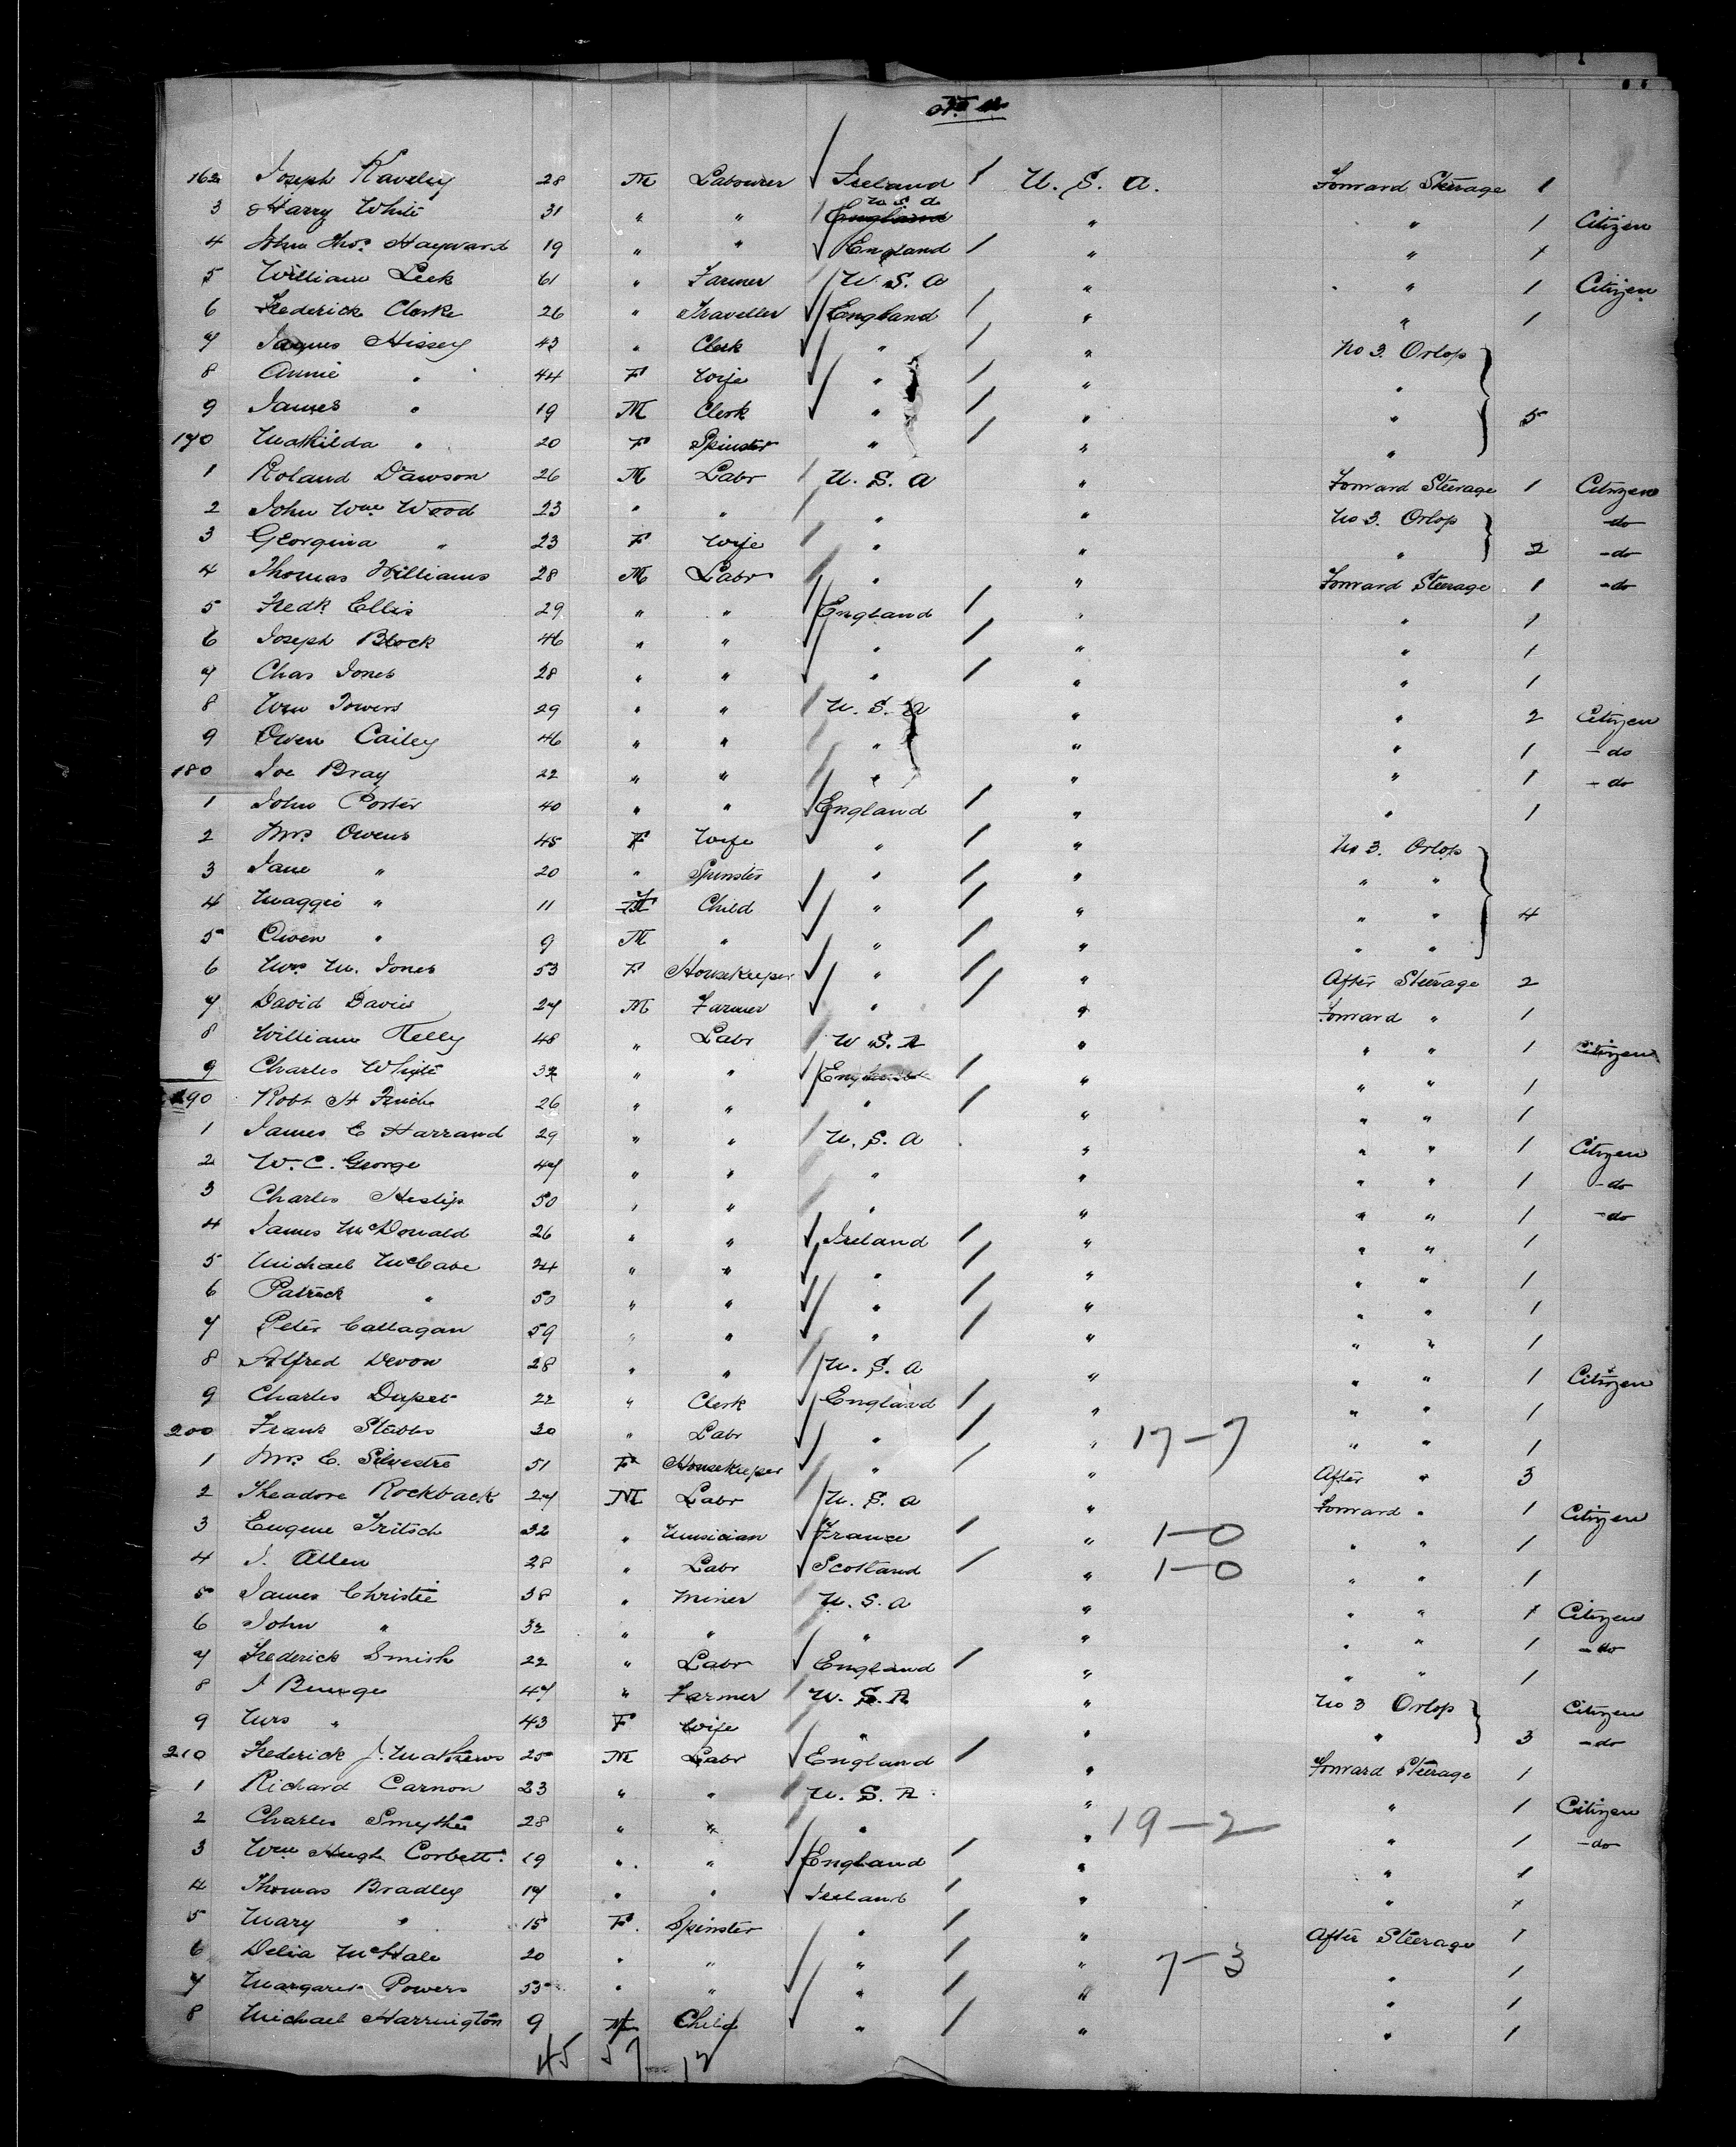 162 Joseph Kaveley 28 M Labourer Ireland U. S. A. Forward Steerage 1
3 Harry White 31 " " England U S A " " 1 Citizen
4 John Thos. Hayward 19 " " England " " 1
5 William Leek 61 " Farmer U. S. A " " 1 Citizen
6 Frederick Clarke 26 " Traveller England " " 1
7 James Hissey 43 " Clerk " " No 3. Orlop
8 Annie " 44 F Wife " " "
9 James " 19 M Clerk " " " 5
170 Mathilda " 20 F Spinster " " "
1 Roland Dawson 26 M Labr U. S. A " Forward Steerage 1 Citizen
2 John Wm. Wood 23 " " " " No 3. Orlop - do
3 Georgina " 23 F Wife " " " 2 - do
4 Thomas Williams 28 M Labr " " Forward Steerage 1 - do
5 Fredk Ellis 29 " " England " " 1
6 Joseph Block 46 " " " " " 1
7 Chas Jones 28 " " " " " 1
8 Wm Towers 29 " " U. S. A " " 2 Citizen
9 Owen Cailey 46 " " " " " 1 - do
180 Joe Bray 22 " " " " " 1 - do
1 John Porter 40 " " England " " 1
2 Mrs. Owens 45 F Wife " " No 3. Orlop
3 Jane " 20 " Spinster " " " "
4 Maggie " 11 F Child " " " " 4
5 Owen " 9 M " " " " "
6 Mrs M. Jones 53 F Housekeeper " " After Steerage 2
7 David Davies 27 M Farmer " " Forward " 1
8 William Kelly 48 " Labr U. S. A " " " 1 Citizen
9 Charles White 32 " " England " " " 1
190 Robt H 26 " " " " " " 1
1 James E Harrand 29 " " U. S. A " " " 1 Citizen
2 W. C. George 47 " " " " " " 1 - do
3 Charles Heslip 50 " " " " " " 1 - do
4 James McDonald 26 " " Ireland " " " 1
5 Michael McCabe 24 " " " " " " 1
6 Patrick " 50 " " " " " " 1
7 Peter Callagan 59 " " " " " " 1
8 Alfred Devon 28 " " U. S. A " " " 1 Citizen
9 Charles Duper 22 " Clerk England " " " 1
200 Frank Stubbs 30 " Labr " " 17-7 " " 1
1 Mrs. E. Silvestre 51 F Housekeeper " " After " 3
2 Theadore Rockback 27 M Labr U. S. A " Forward " 1 Citizen
3 Eugene Tritsch 32 " Musician France " 1-0 " " 1
4 J. Allen 28 " Labr Scotland " 1-0 " " 1
5 James Christie 38 " Miner U. S. A " " " 1 Citizen
6 John " 32 " " " " " " 1 - do
7 Frederick Smish 22 " Labr England " " " 1
8 J Bunge 47 " Farmer U. S. A " No 3 Orlop Citizen
9 Mrs " 43 F Wife " " " 3 - do
210 Frederick J. Mathews 25 M Labr England " Forward Steerage 1
1 Richard Carnon 23 " " U. S. A. " " 1 Citizen
2 Charles Smythe 28 " " " " 19-2 " 1 - do
3 Wm Hugh Corbett 19 " " England " " 1
4 Thomas Bradley 17 " " Ireland " " 1
5 Mary " 15 F. Spinster " " After Steerage 1
6 Delia McHale 20 " " " " 7-3 " 1
7 Margaret Powers 55 " " " " " 1
8 Michael Harrington 9 M Child " " " 1
45 57 17